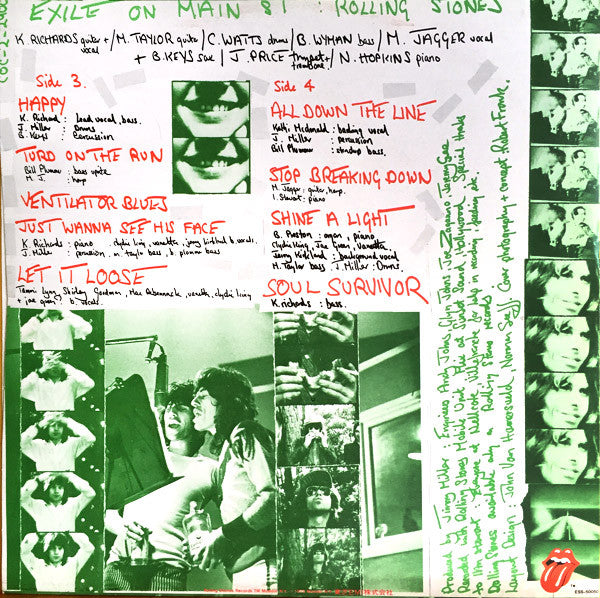 EXILE ON MAIN ST : ROLLING STONES
K. RICHARDS guitar + / M. TAYLOR guitar / C. WATTS drums / B. WYMAN bass / M. JAGGER vocal
vocal
+ B. KEYS sax / J. PRICE trumpet + / N. HOPKINS piano
trombone
Side 3.
HAPPY
K. Richard : lead vocal, bass.
J. Miller : Drums
B. Keys : Percussion
TURD ON THE RUN
Bill Plummer : bass
M. J. : harp
VENTILATOR BLUES
JUST WANNA SEE HIS FACE
K. Richards : piano clydie king, vanetta, jerry kirkland b. vocals.
J. Miller : percussion, m. taylor bass, b. plummer bass
LET IT LOOSE
Tammi Lynn, Shirley Goodman, Mac Rebennack, vanetta, clydie king
+ joe green : b. vocals
Side 4
ALL DOWN THE LINE
Kathi Mcdonald : backing vocal
J. Miller : percussion
Bill Plummer : standup bass.
STOP BREAKING DOWN
M. Jagger : guitar, harp.
I. Stewart : piano
SHINE A LIGHT
B. Preston : organ, piano
Clydie King, Joe Green, Vanetta
Jerry Kirkland : background vocal
M. Taylor bass J. Miller : Drums.
SOUL SURVIVOR
K. richards : bass.
Produced by Jimmy Miller Engineers Andy Johns, Glyn Johns, Joe Zagarino, Jeremy Gee
Recorded with Rolling Stones Mobile Unit Also at Sunset Sound, Hollywood. Special thanks
to Ian Stewart
Rolling Stones available only on Rolling Stones records
Layout Design : John Van Hamersveld Norman Seeff Cover photography + concept Robert Frank.
COC-2-2900